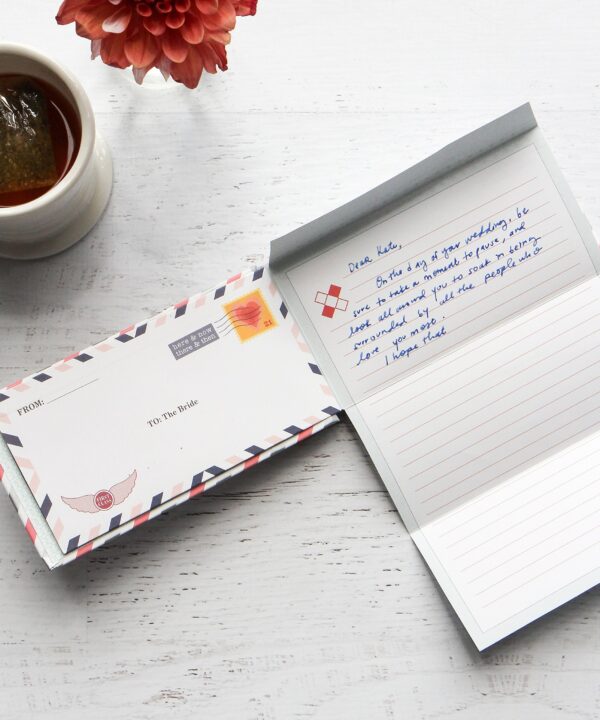 here & now
there & then
21
FROM:
TO: The Bride
FIRST
CLASS
Dear Kate,
On the day of your wedding, be
sure to take a moment to pause, and
look all around you to soak in being
surrounded by all the people who
love you most.
I hope that